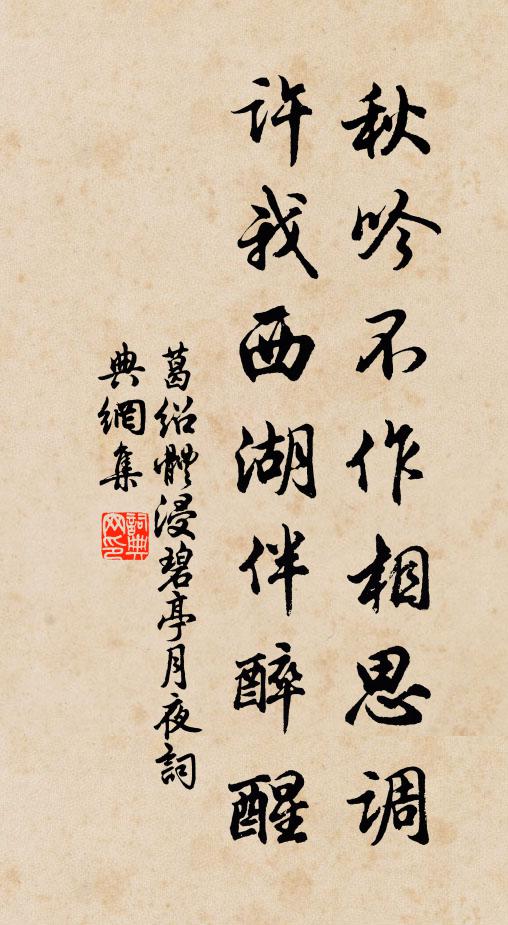 秋吟不作相思调
许我西湖伴醉醒
葛绍體浸碧亭月夜詞
典網集
詞典
网印